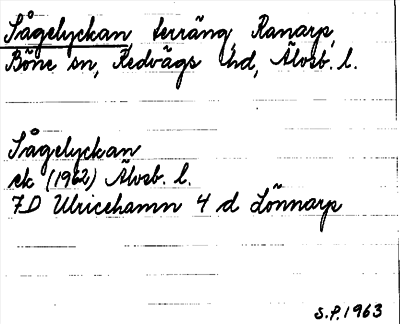 Sågelyckan, terräng, Ranarp,
Böne sn, Redvägs hd, Älvsb. l.
Sågelyckan
ek (1962) Älvsb. l.
7D Ulricehamn 4 d Lönnarp
S.P. 1963